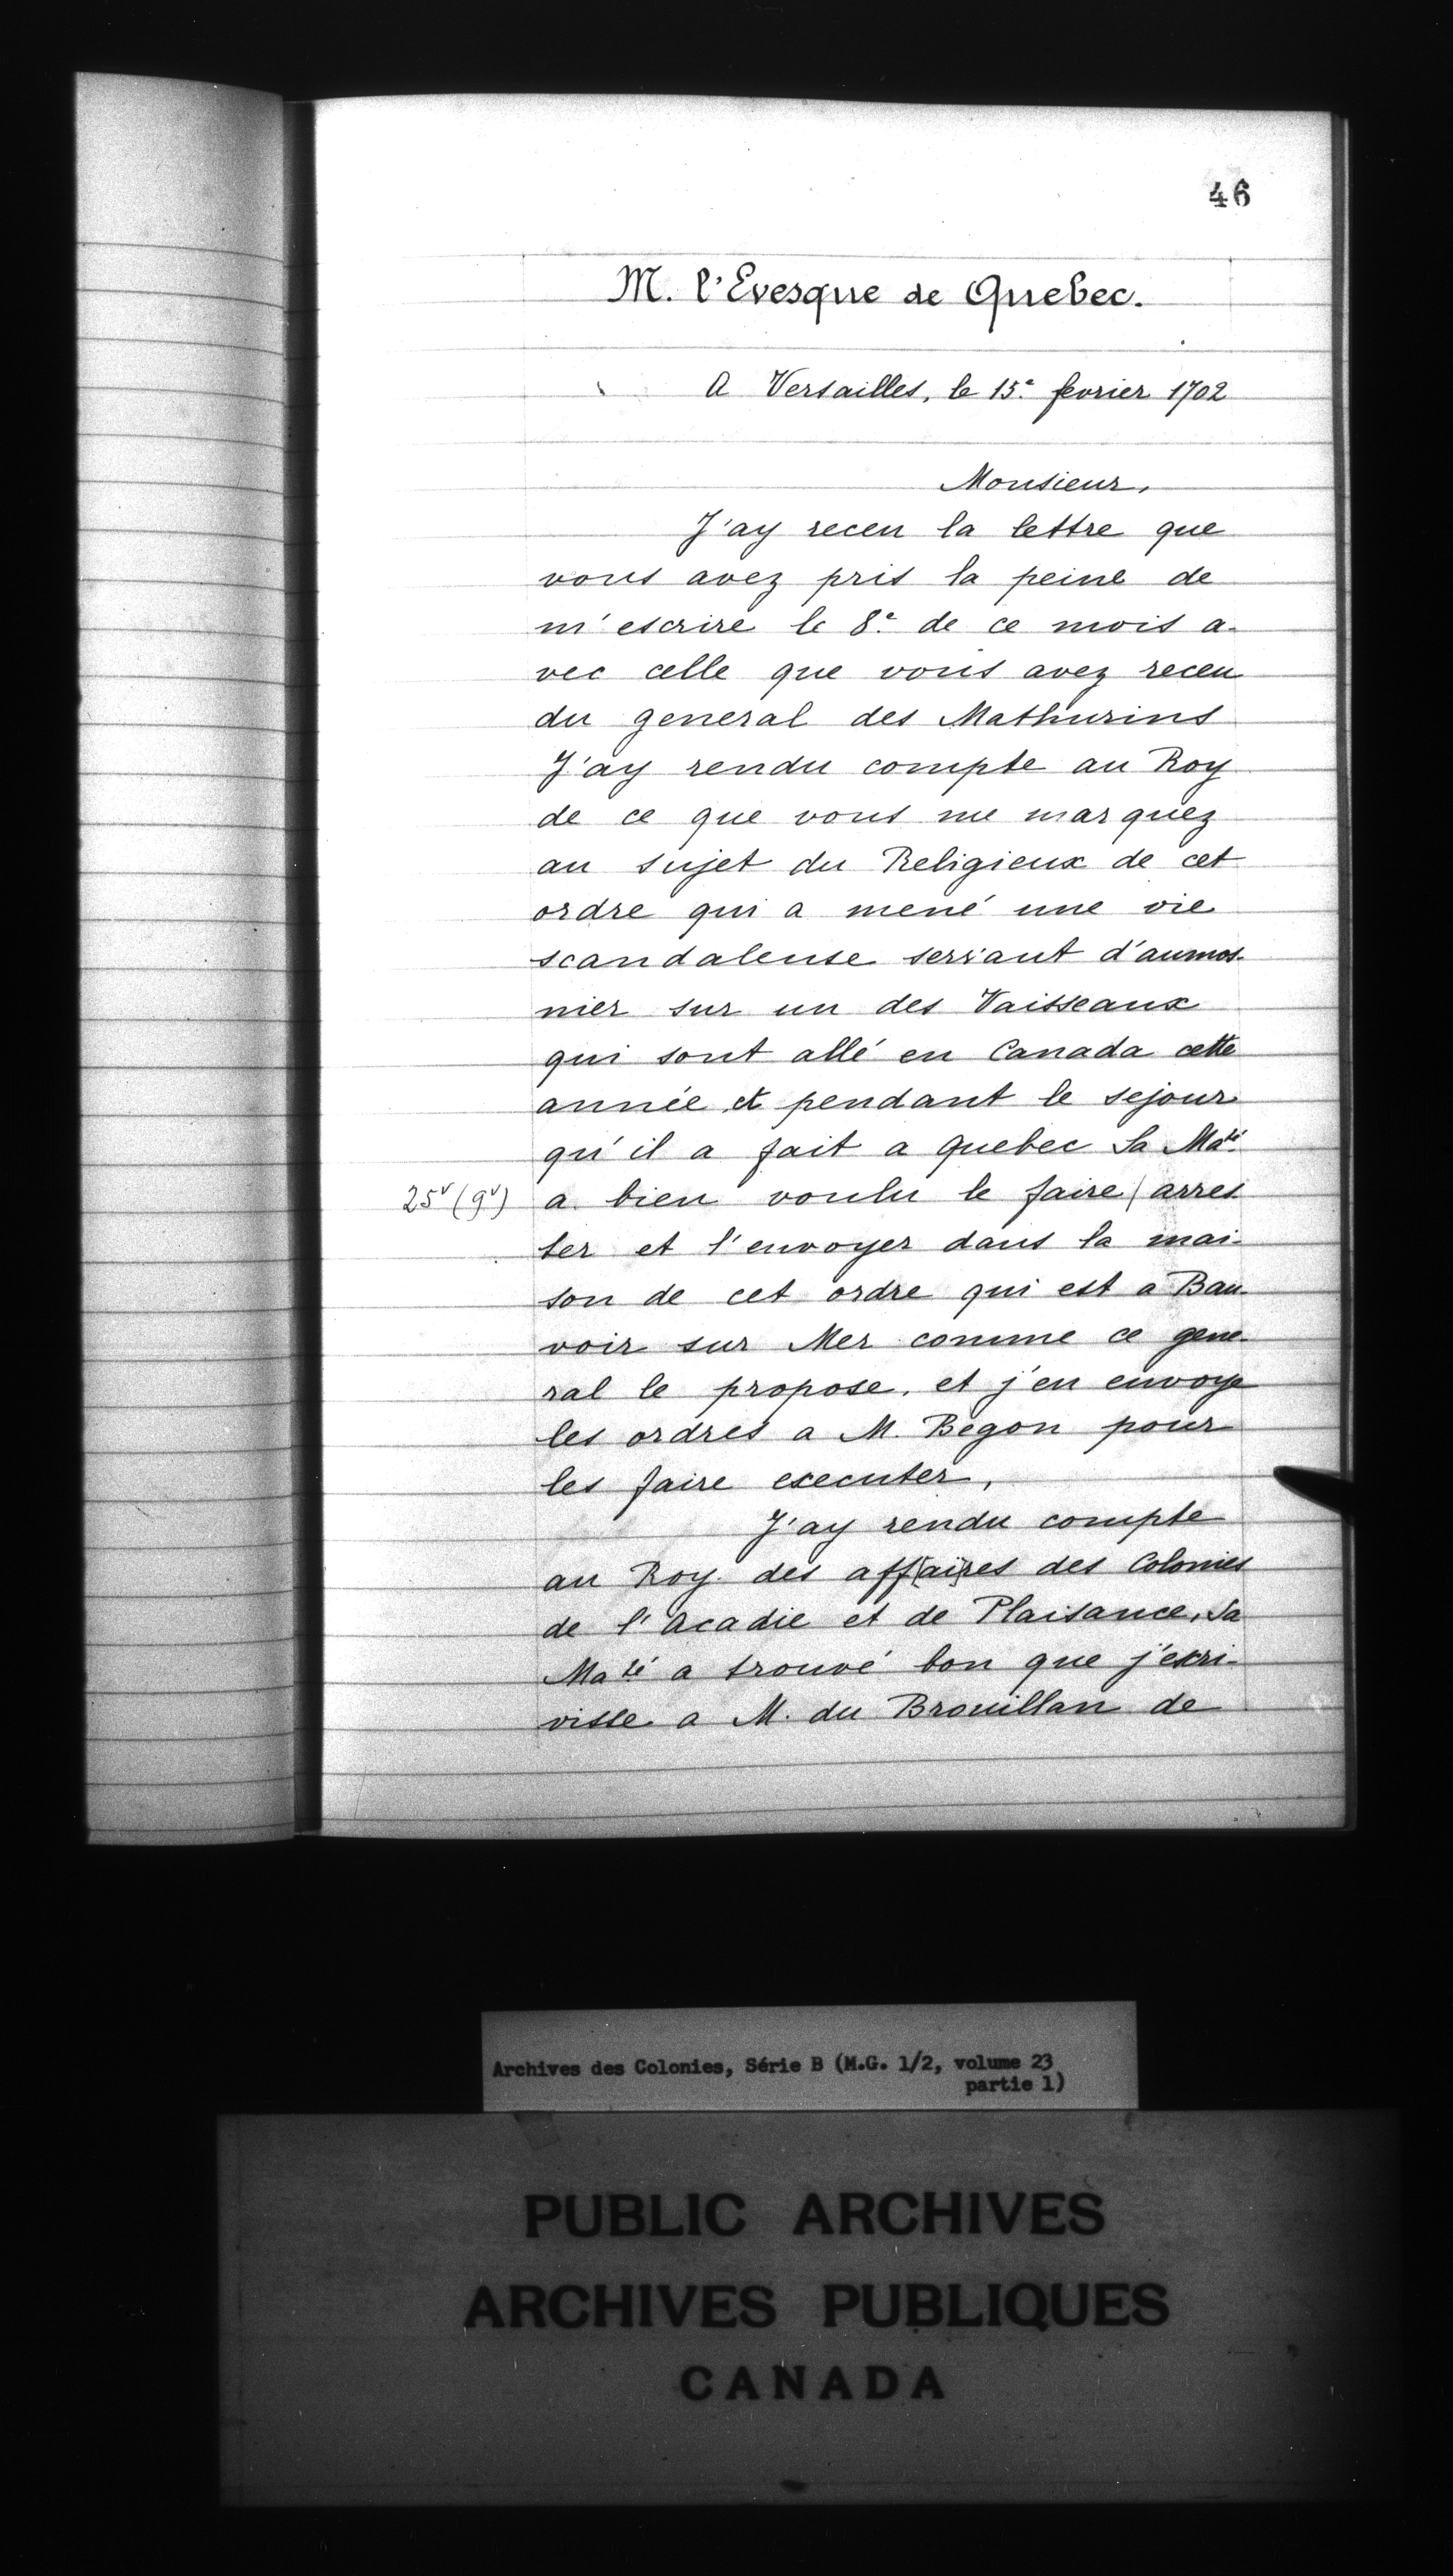 46
M. l'Evesque de Quebec.
A Versailles, le 15e fevrier 1702
Monsieur,
J'ay receu la lettre que
vous avez pris la peine de
m'escrire le 8e de ce mois a-
vec celle que vous avez receu
du general des Mathurins
J'ay rendu compte au Roy
de ce que vous me marquez
au sujet du Religieux de cet
ordre qui a mené une vie
scandaleuse servant d'aumos-
nier sur un des Vaisseaux
qui sont allé en Canada cette
année et pendant le sejour
qu'il a fait a quebec Sa Maté
25v (9v) a bien voulu le faire / arres
ter et l'envoyer dans la mai-
son de cet ordre qui est a Bau-
voir sur Mer comme ce gene-
ral le propose, et j'en envoye
les ordres a M. Begon pour
les faire executer,
J'ay rendu compte
au Roy des aff[ai]res des Colonies
de l'acadie et de Plaisance, Sa
Maté a trouvé bon que j'escri-
visse a M. du Brouillan de
Archives des Colonies, Série B (M.G. 1/2, volume 23
partie 1)
PUBLIC ARCHIVES
ARCHIVES PUBLIQUES
CANADA